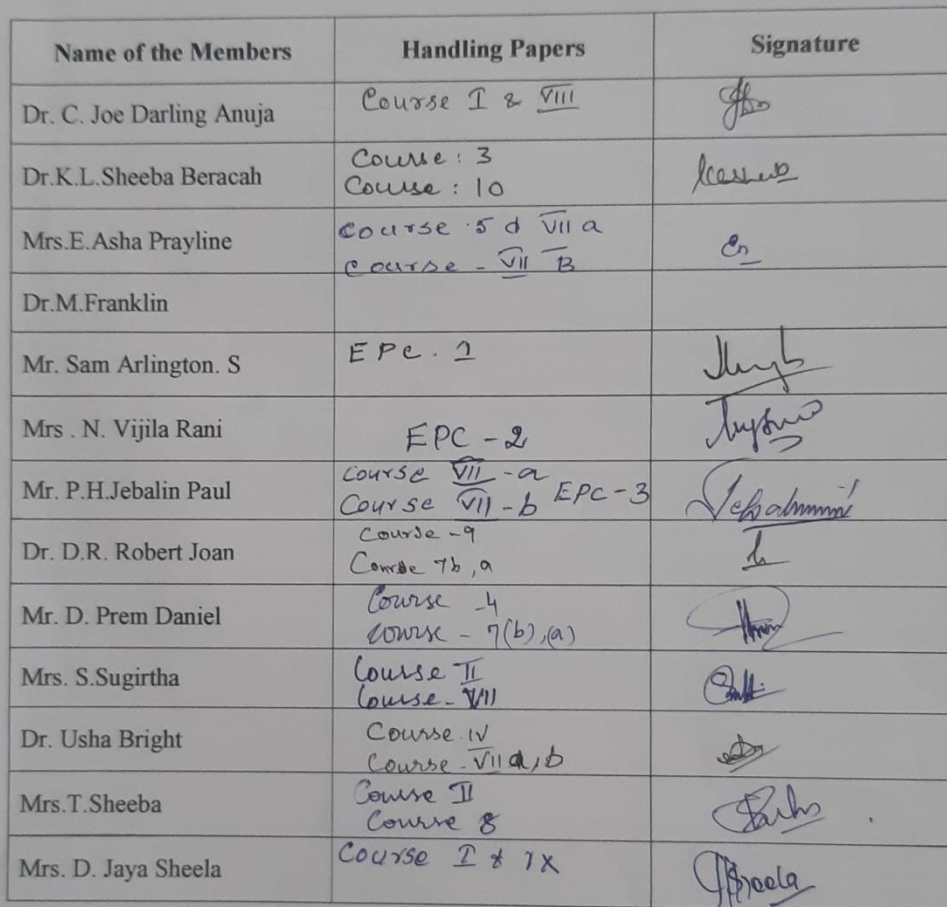 Name of the Members Handling Papers Signature
Dr. C. Joe Darling Anuja Course I & VIII
Dr.K.L.Sheeba Beracah Course : 3
Course : 10
Mrs.E.Asha Prayline Course 5 d VII a
Course - VII B
Dr.M.Franklin
Mr. Sam Arlington. S EPC . 1
Mrs . N. Vijila Rani EPC - 2
Mr. P.H.Jebalin Paul Course VII - a
Course VII - b EPC - 3
Dr. D.R. Robert Joan Course - 9
Course 7b , a
Mr. D. Prem Daniel Course - 4
Course - 7(b),(a)
Mrs. S.Sugirtha Course II
Course - VII
Dr. Usha Bright Course IV
Course - VII a, b
Mrs.T.Sheeba Course II
Course 8
Mrs. D. Jaya Sheela Course I & IX